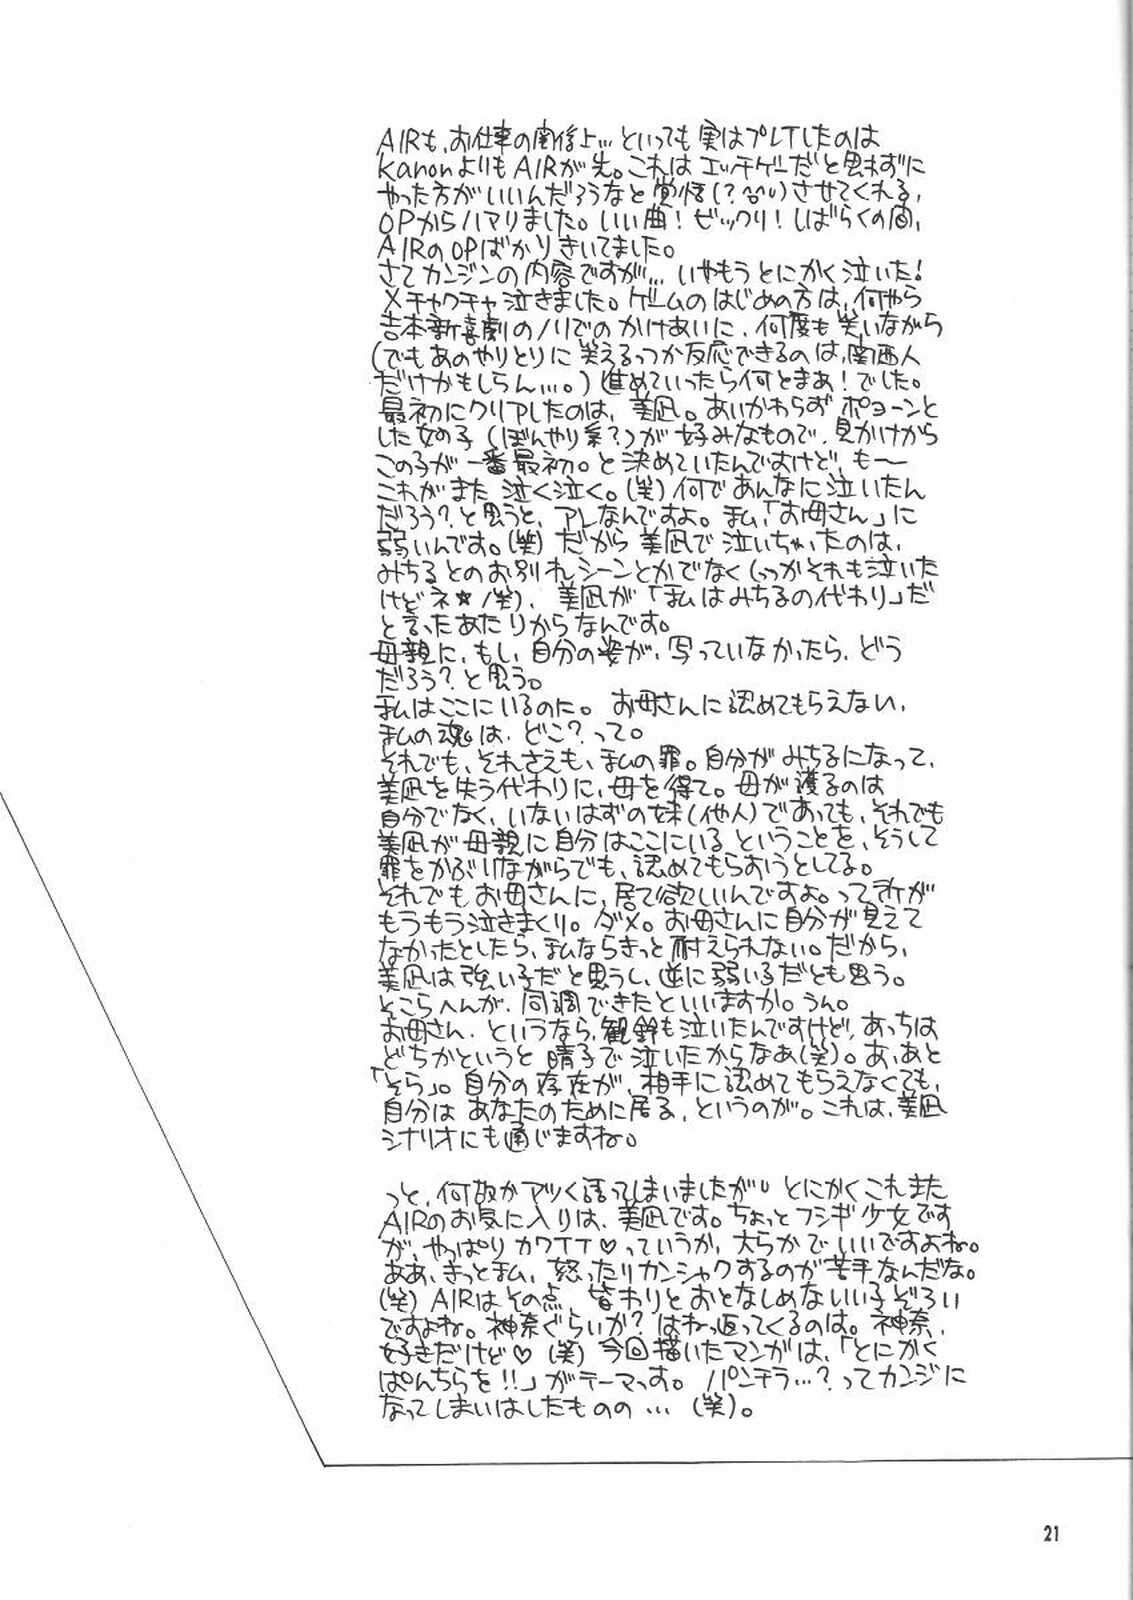 AIRも、お仕事の関係上…といっても実はプレイしたのは
KanonよりもAIRが先。これはエッチゲーだと思わずに
やった方がいいんだろうなと覚悟(?^^;)させてくれる、
OPからハマりました。いい曲!ビックリ!しばらくの間、
AIRのOPばかりきいてました。
さてカンジンの内容ですが… いやもうとにかく泣いた!
メチャクチャ泣きました。ゲームのはじめの方は、何やら
吉本新喜劇のノリでのかけあいに、何度も笑いながら
(でもあのやりとりに笑えるっつか反応できるのは、関西人
だけかもしらん…。)進めていったら何とまあ!でした。
最初にクリアしたのは、美凪。あいかわらずポヨーンと
した女の子(ぼんやり系?)が好みなもので、見かけから
この子が一番最初。と決めていたんですけど、も〜
これがまた泣く泣く。(笑)何であんなに泣いたん
だろう?と思うと、アレなんですよ。私、「お母さん」に
弱いんです。(笑)だから美凪で泣いちゃったのは、
みちるとのお別れシーンとかでなく(っつかそれも泣いた
けどネ★/笑)、美凪が「私はみちるの代わり」だ
と言ったあたりからなんです。
母親に、もし、自分の姿が、写っていなかったら、どう
だろう?と思う。
私はここにいるのに。お母さんに認めてもらえない、
私の魂は、どこ?って。
それでも、それさえも、私の罪。自分がみちるになって、
美凪を失う代わりに、母を得て。母が護るのは
自分でなく、いないはずの妹(他人)であっても、それでも
美凪が母親に自分はここにいるということを、そうして
罪をかぶりながらでも、認めてもらおうとしてる。
それでもお母さんに、居て欲しいんですよ。って所が
もうもう泣きまくり。ダメ。お母さんに自分が見えて
なかったとしたら、私ならきっと耐えられない。だから、
美凪は強い子だと思うし、逆に弱い子だとも思う。
そこらへんが、同調できたといいますか。うん。
お母さん、というなら、観鈴も泣いたんですけど、あっちは
どちかというと晴子で泣いたからなあ(笑)。あ、あと
「そら」。自分の存在が、相手に認めてもらえなくても、
自分はあなたのために居る、というのが。これは、美凪
シナリオにも通じますね。
っと、何故かアツく語ってしまいましたが、とにかくこれまた
AIRのお気に入りは、美凪です。ちょっとフシギ少女です
が、やっぱりカワイイ♡っていうか、大らかでいいですよね。
ああ、きっと私、怒ったりカンシャクするのが苦手なんだな。
(笑)AIRはその点、皆わりとおとなしめないい子ぞろい
ですよね。神奈ぐらいか?はねっ返ってくるのは。神奈、
好きだけど♡(笑)今回描いたマンガは、「とにかく
ぱんちらを!!」がテーマっす。パンチラ…?ってカンジに
なってしまいはしたものの…(笑)。
21